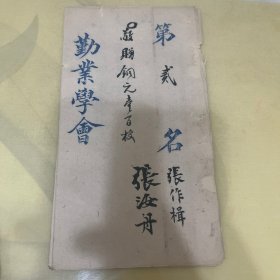 第貳名
張作楫
張汝丹
敬賜銅元壹百枚
勤業學會